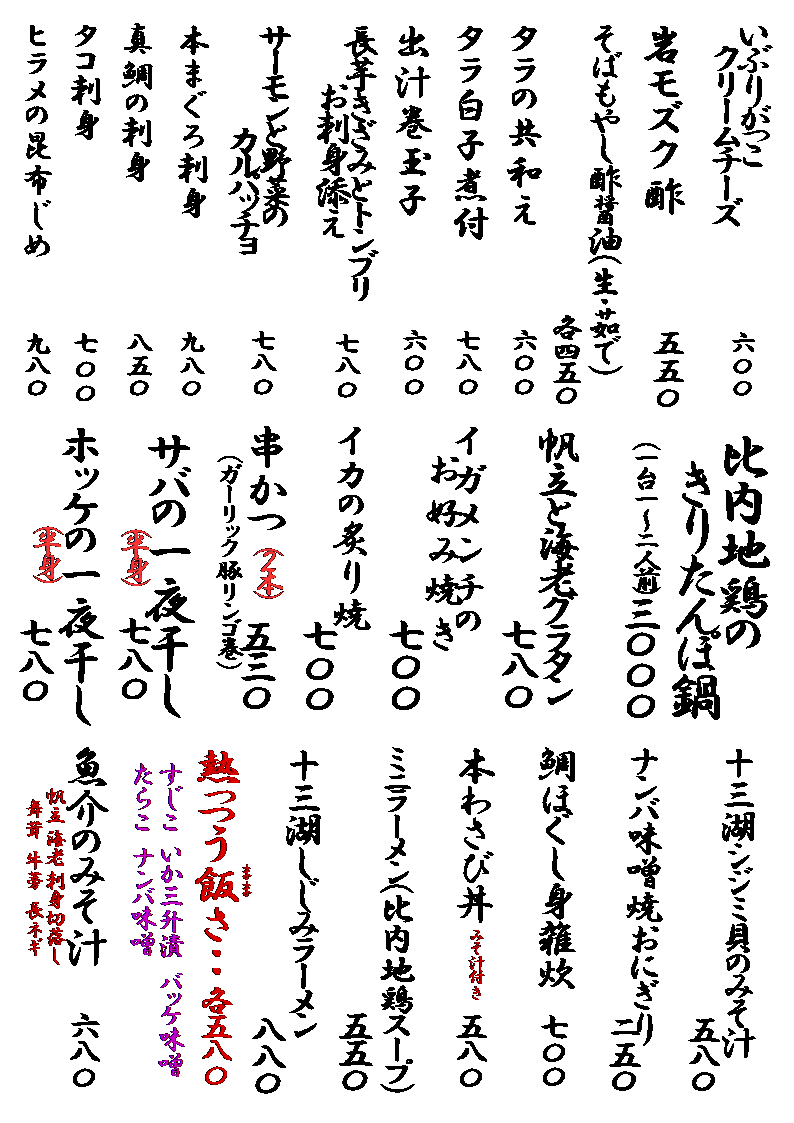 いぶりがっこ
クリームチーズ
六〇〇
岩モズク酢
五五〇
そばもやし酢醤油(生・茹で)
各四五〇
タラの共和え
六〇〇
タラ白子煮付
七八〇
出汁巻玉子
六〇〇
長芋きざみとトンブリ
お刺身添え
七八〇
サーモンと野菜の
カルパッチョ
七八〇
本まぐろ刺身
九八〇
真鯛の刺身
八五〇
タコ刺身
七〇〇
ヒラメの昆布じめ
九八〇
比内地鶏の
きりたんぽ鍋
(一台一〜二人前)三〇〇〇
帆立と海老グラタン
七八〇
イガメンチの
お好み焼き
七〇〇
イカの炙り焼
七〇〇
串かつ(2本)
(ガーリック豚リンゴ巻)
五三〇
サバの一夜干し
(半身)
七八〇
ホッケの一夜干し
(半身)
七八〇
十三湖シジミ貝のみそ汁
五八〇
ナンバ味噌焼おにぎり
二五〇
鯛ほぐし身雑炊
七〇〇
本わさび丼
みそ汁付き
五八〇
ミニラーメン(比内地鶏スープ)
五五〇
十三湖しじみラーメン
八八〇
熱っつう飯さ‥各五八〇
まま
すじこ いか三升漬 バッケ味噌
たらこ ナンバ味噌
魚介のみそ汁
帆立 海老 刺身切落し
舞茸 牛蒡 長ネギ
六八〇